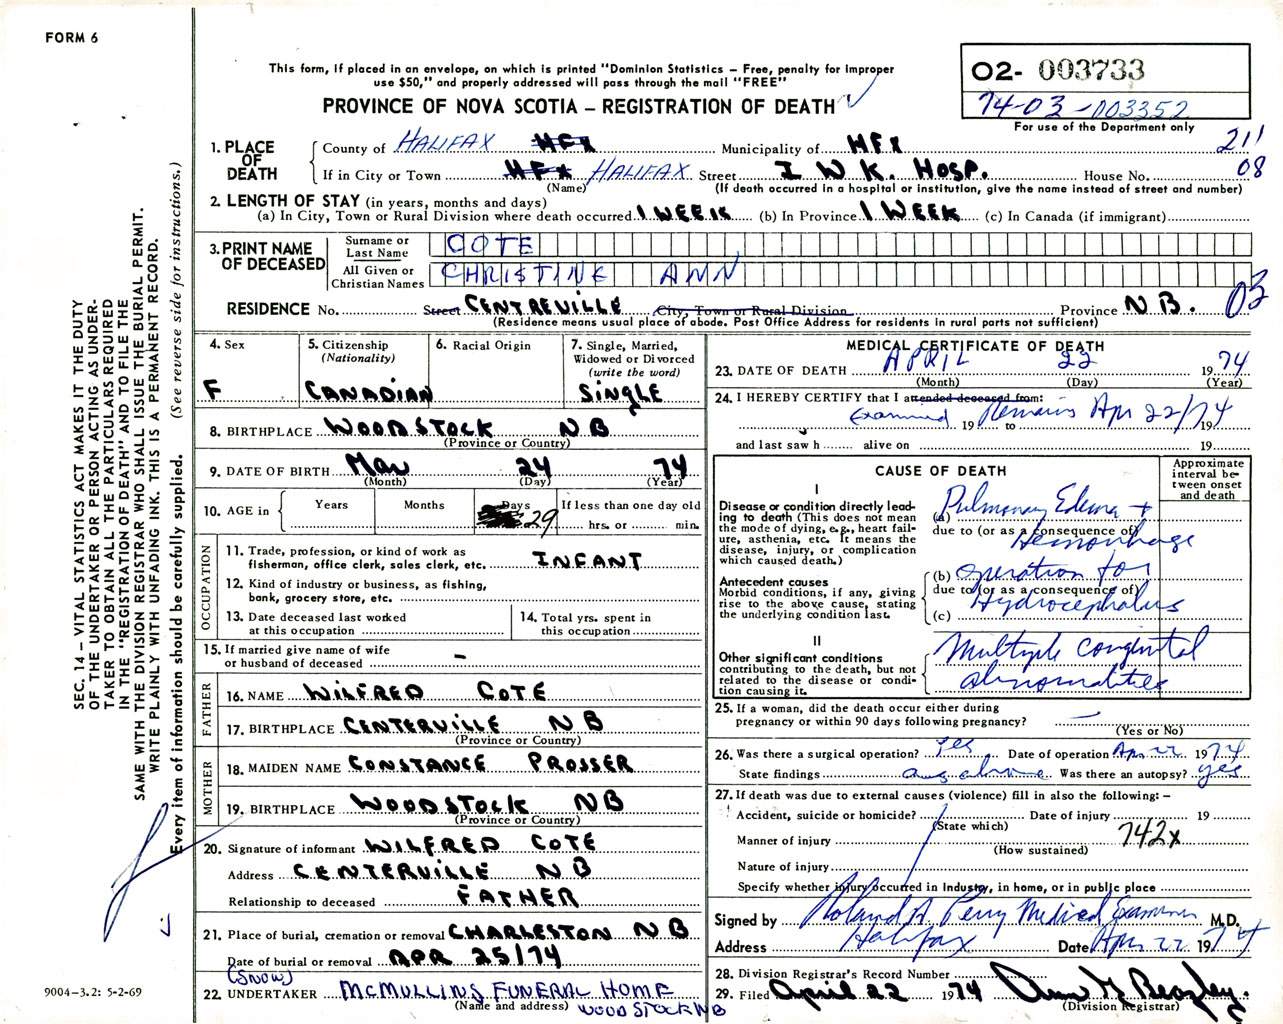 FORM 6
This form, if placed in an envelope, on which is printed "Dominion Statistics – Free, penalty for improper
use $50," and properly addressed will pass through the mail "FREE"
PROVINCE OF NOVA SCOTIA – REGISTRATION OF DEATH
02- 003733
74-03-003352
For use of the Department only
1. PLACE OF DEATH
County of HALIFAX HFX Municipality of HFX 211
If in City or Town HFX HALIFAX Street I W K. HOSP. House No. 08
(Name) (If death occurred in a hospital or institution, give the name instead of street and number)
2. LENGTH OF STAY (in years, months and days)
(a) In City, Town or Rural Division where death occurred 1 WEEK (b) In Province 1 WEEK (c) In Canada (if immigrant)
3. PRINT NAME OF DECEASED
Surname or Last Name COTE
All Given or Christian Names CHRISTINE ANN
RESIDENCE No. Street CENTREVILLE City, Town or Rural Division Province N B. 03
(Residence means usual place of abode. Post Office Address for residents in rural parts not sufficient)
4. Sex
F
5. Citizenship
(Nationality)
CANADIAN
6. Racial Origin
7. Single, Married,
Widowed or Divorced
(write the word)
SINGLE
8. BIRTHPLACE WOODSTOCK NB
(Province or Country)
9. DATE OF BIRTH Mar 24 74
(Month) (Day) (Year)
10. AGE in Years Months Days 29 If less than one day old
hrs. or min.
OCCUPATION
11. Trade, profession, or kind of work as
fisherman, office clerk, sales clerk, etc. INFANT
12. Kind of industry or business, as fishing,
bank, grocery store, etc.
13. Date deceased last worked
at this occupation
14. Total yrs. spent in
this occupation
15. If married give name of wife
or husband of deceased –
FATHER
16. NAME WILFRED COTE
17. BIRTHPLACE CENTERVILLE N B
(Province or Country)
MOTHER
18. MAIDEN NAME CONSTANCE PROSSER
19. BIRTHPLACE WOODSTOCK NB
(Province or Country)
20. Signature of informant WILFRED COTE
Address CENTERVILLE N B
Relationship to deceased FATHER
21. Place of burial, cremation or removal CHARLESTON N B
Date of burial or removal APR 25/74
(SNOW)
22. UNDERTAKER MCMULLINS FUNERAL HOME
(Name and address) WOODSTOCK NB
MEDICAL CERTIFICATE OF DEATH
23. DATE OF DEATH APRIL 22 1974
(Month) (Day) (Year)
24. I HEREBY CERTIFY that I attended deceased from:
Examined 19 Remains to Apr 22/74 19
and last saw h alive on 19
CAUSE OF DEATH
Approximate
interval be-
tween onset
and death
I
Disease or condition directly lead-
ing to death (This does not mean
the mode of dying, e.g., heart fail-
ure, asthenia, etc. It means the
disease, injury, or complication
which caused death.)
(a) Pulmonary Edema +
due to (or as a consequence of)
Hemorrhage
Antecedent causes
Morbid conditions, if any, giving
rise to the above cause, stating
the underlying condition last.
(b) operation for
due to (or as a consequence of)
Hydrocephalus
(c)
II
Other significant conditions
contributing to the death, but not
related to the disease or condi-
tion causing it.
Multiple congenital
abnormalities
25. If a woman, did the death occur either during
pregnancy or within 90 days following pregnancy? –
(Yes or No)
26. Was there a surgical operation? Yes Date of operation Apr 22 1974
State findings as above Was there an autopsy? yes
27. If death was due to external causes (violence) fill in also the following: –
Accident, suicide or homicide? Date of injury 19
(State which)
Manner of injury 742x
(How sustained)
Nature of injury
Specify whether injury occurred in Industry, in home, or in public place
Signed by Roland A. Perry Medical Examiner M.D.
Address Halifax Date Apr 22 1974
28. Division Registrar's Record Number
29. Filed April 22 1974
(Division Registrar)
SEC. 14 – VITAL STATISTICS ACT MAKES IT THE DUTY
OF THE UNDERTAKER OR PERSON ACTING AS UNDER-
TAKER TO OBTAIN ALL THE PARTICULARS REQUIRED
IN THE "REGISTRATION OF DEATH" AND TO FILE THE
SAME WITH THE DIVISION REGISTRAR WHO SHALL ISSUE THE BURIAL PERMIT.
WRITE PLAINLY WITH UNFADING INK. THIS IS A PERMANENT RECORD.
Every item of information should be carefully supplied. (See reverse side for instructions.)
9004-3.2: 5-2-69